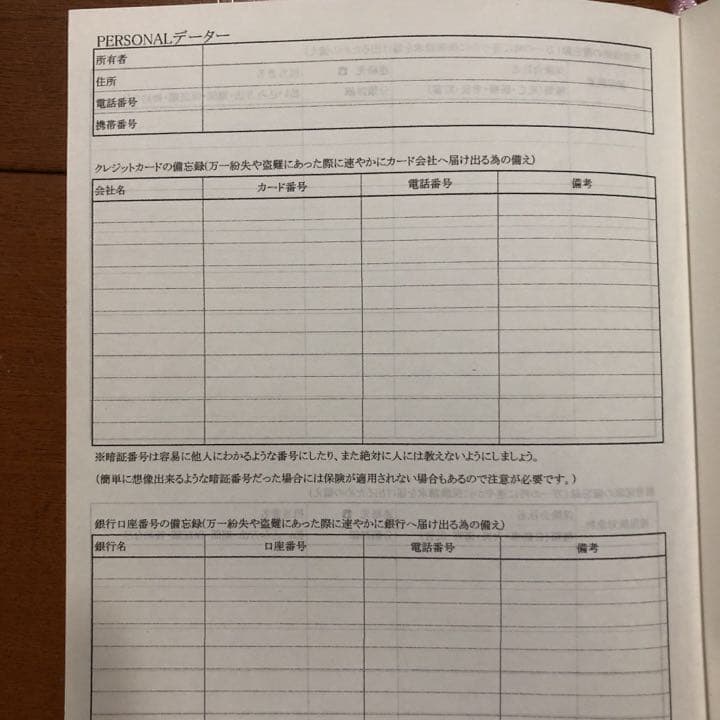 PERSONALデーター
所有者
住所
電話番号
携帯番号
クレジットカードの備忘録(万一紛失や盗難にあった際に速やかにカード会社へ届け出る為の備え)
会社名 カード番号 電話番号 備考
※暗証番号は容易に他人にわかるような番号にしたり、また絶対に人には教えないようにしましょう。
(簡単に想像出来るような暗証番号だった場合には保険が適用されない場合もあるので注意が必要です。)
銀行口座番号の備忘録(万一紛失や盗難にあった際に速やかに銀行へ届け出る為の備え)
銀行名 口座番号 電話番号 備考